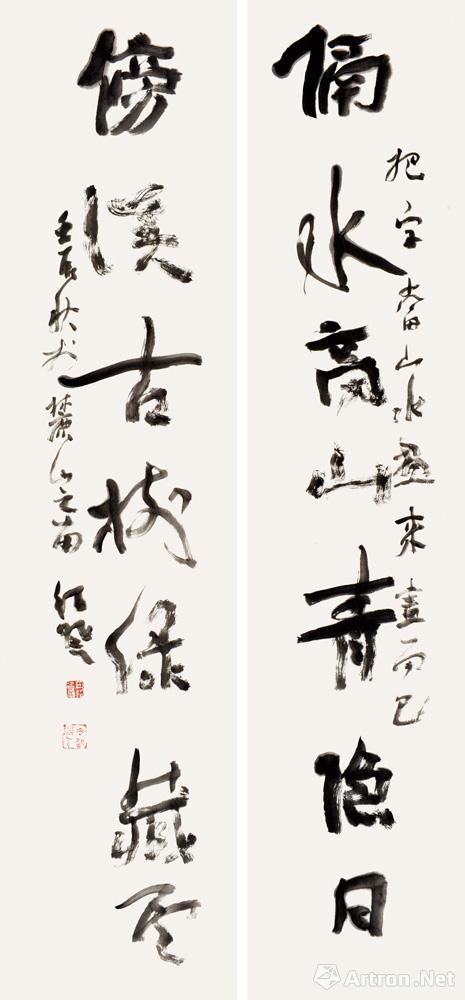 隔水高山青隐日
把字当山水画来画而已
傍溪古树绿藏云
壬辰秋于麓山之南
Artron.Net